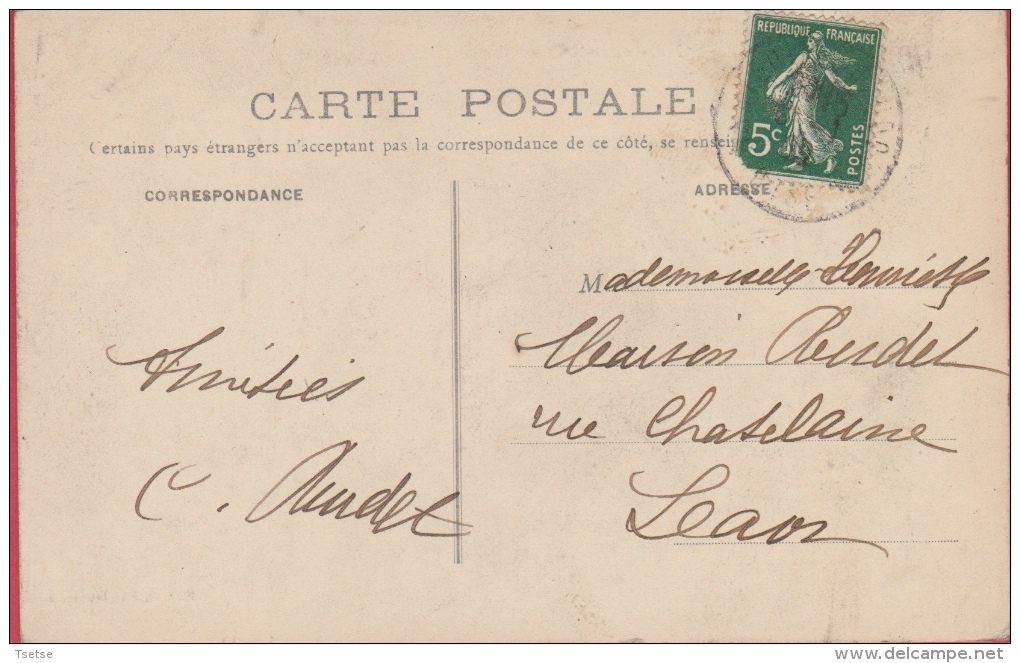 REPUBLIQUE FRANÇAISE
5c
POSTES
CARTE POSTALE
Certains pays étrangers n'acceptent pas la correspondance de ce côté, se rensei
CORRESPONDANCE
ADRESSE
Mademoiselle Henriette
Maison Audet
rue Chatelaine
Laon
Amitiés
C. Audet
Tsetse
delcampe.net